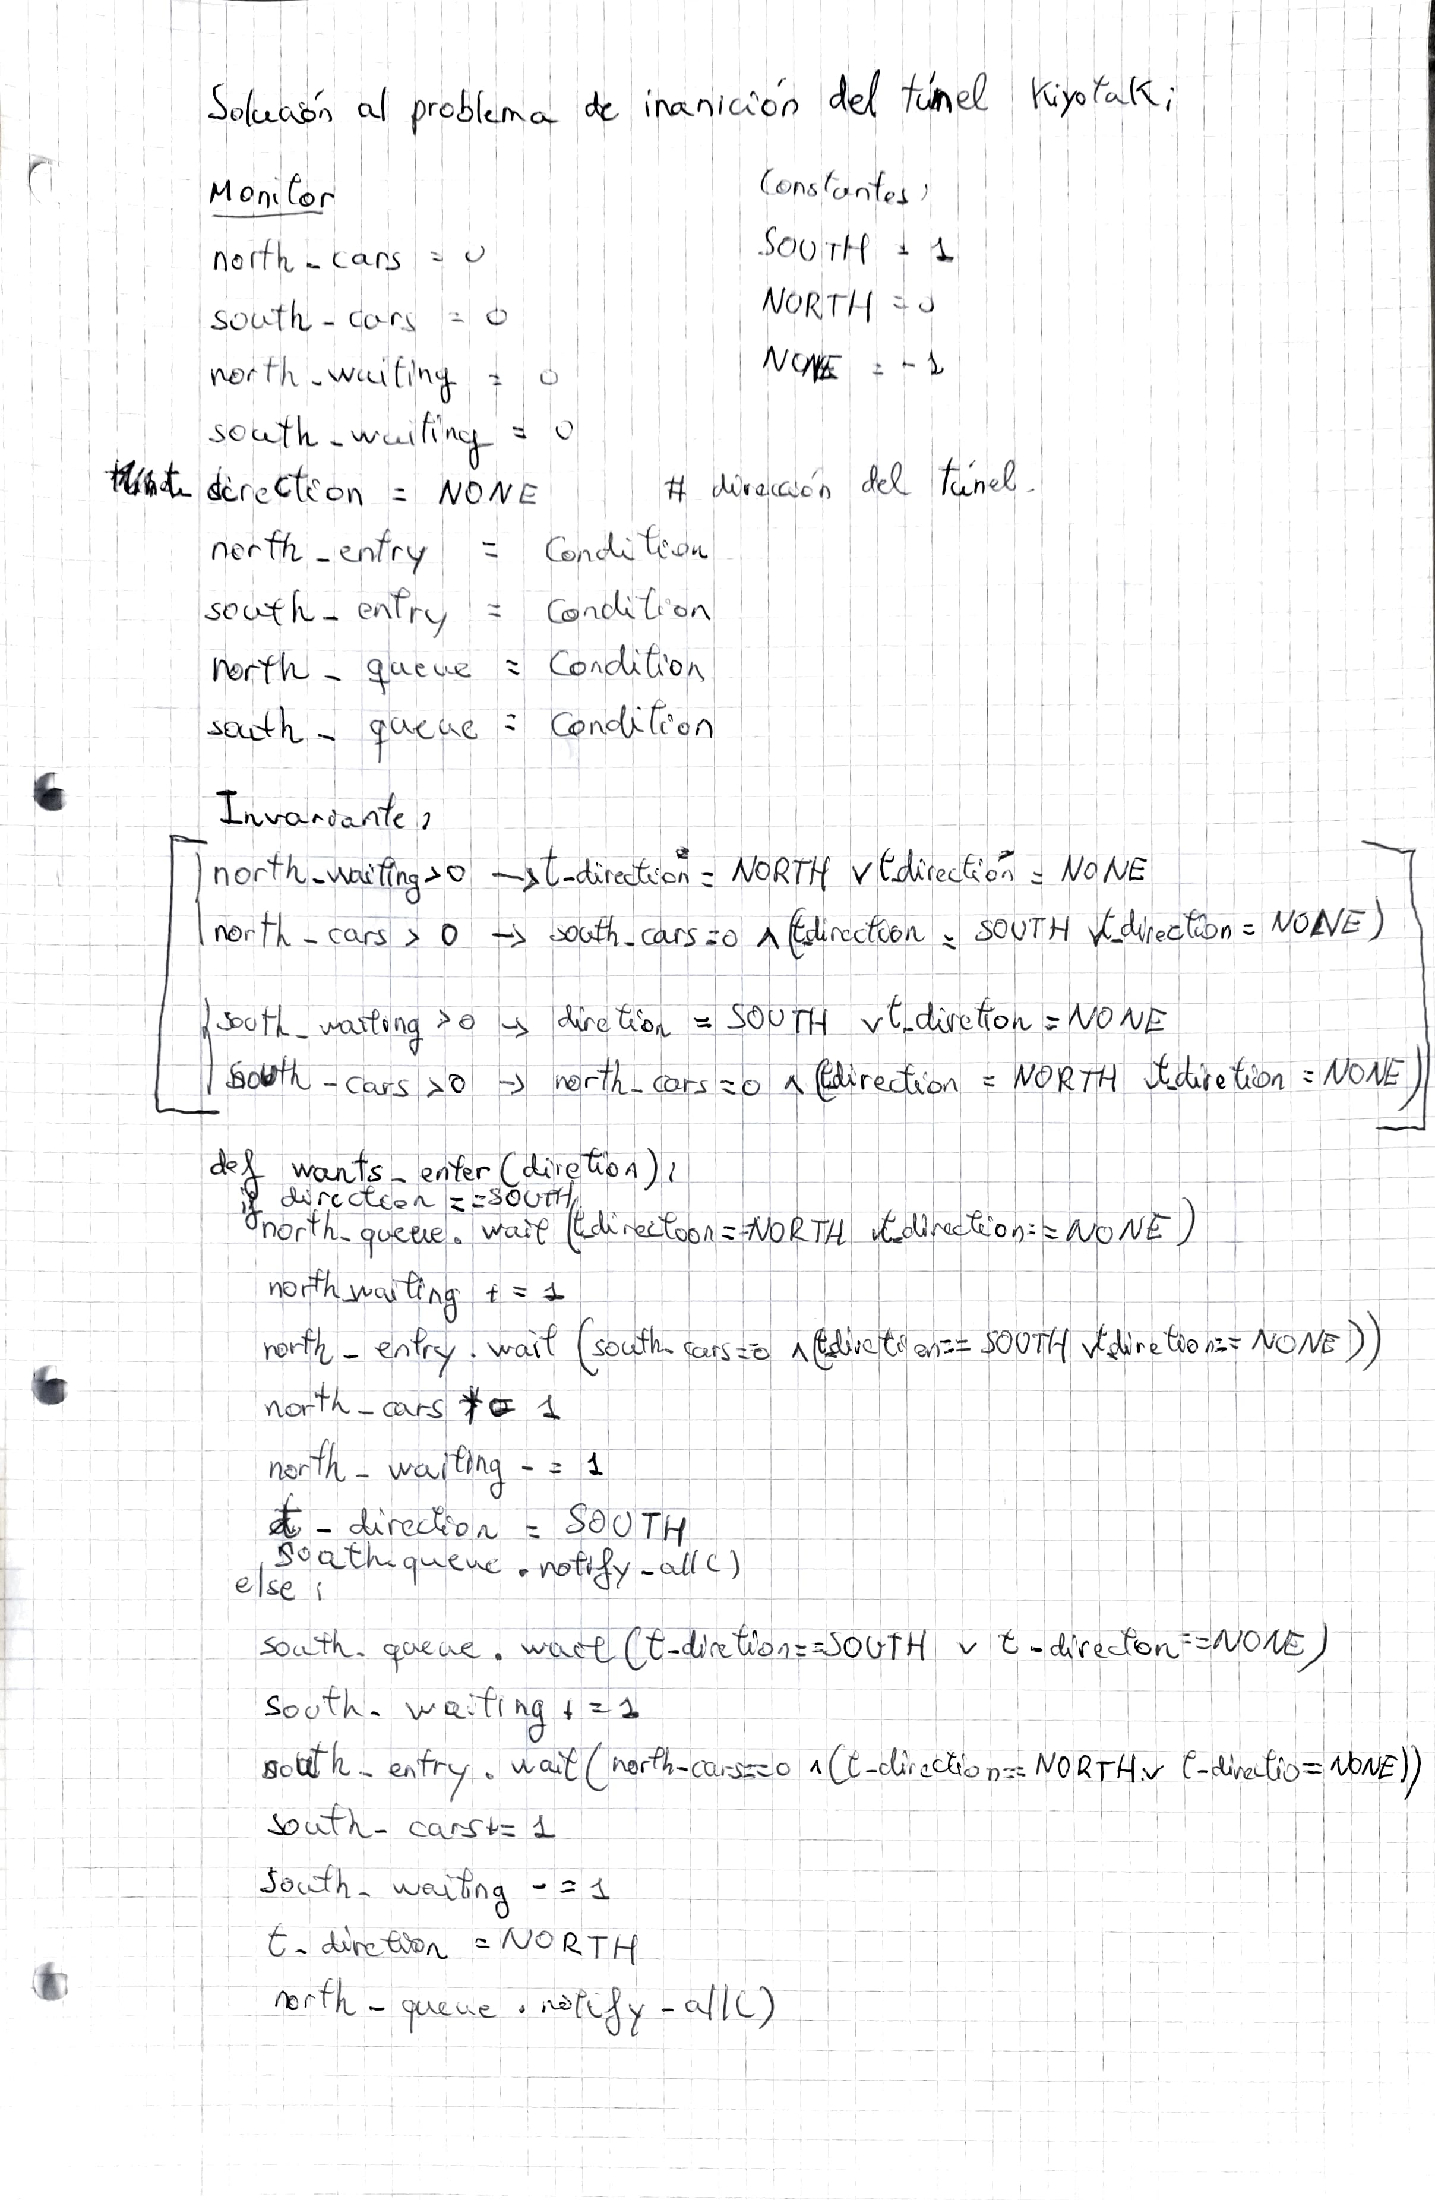 Solución al problema de inanición del túnel Kiyotaki
Monitor
Constantes:
north_cars = 0
SOUTH = 1
south_cars = 0
NORTH = 0
north_waiting = 0
NONE = -1
south_waiting = 0
direction = NONE # dirección del túnel.
north_entry = Condition
south_entry = Condition
north_queue = Condition
south_queue = Condition
Invariante:
north_waiting > 0 → t_direction = NORTH ∨ t_direction = NONE
north_cars > 0 → south_cars = 0 ∧ (t_direction = SOUTH ∨ t_direction = NONE)
south_waiting > 0 → direction = SOUTH ∨ t_direction = NONE
south_cars > 0 → north_cars = 0 ∧ (t_direction = NORTH ∨ t_diretion = NONE)
def wants_enter (diretion):
if direction == SOUTH:
north_queue. wait (t_direction == NORTH ∨ t_direction == NONE)
north_waiting += 1
north_entry. wait (south_cars == 0 ∧ (t_diretion == SOUTH ∨ t_diretion == NONE))
north_cars += 1
north_waiting -= 1
t_direction = SOUTH
south_queue. notify_all()
else:
south_queue. wait (t_diretion == SOUTH ∨ t_direction == NONE)
south_waiting += 1
south_entry. wait (north_cars == 0 ∧ (t_direction == NORTH ∨ t_directio = NONE))
south_cars += 1
south_waiting -= 1
t_diretion = NORTH
north_queue. notify_all()